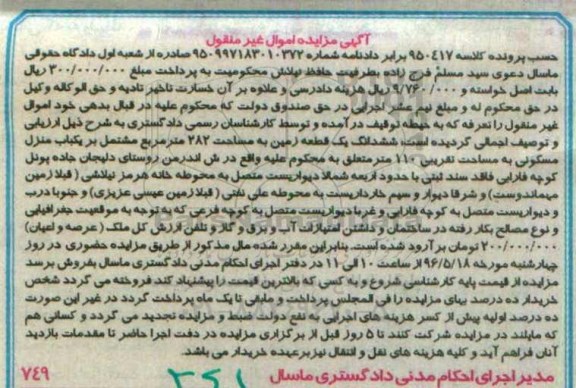 آگهی مزایده اموال غیر منقول
حسب پرونده کلاسه ۹۵۰۴۱۷ برابر دادنامه شماره ۹۵۰۹۹۷۱۸۳۰۱۰۳۷۲ صادره از شعبه اول دادگاه حقوقی
ماسال دعوی سید مسلم فرج زاده بطرفیت حافظ نیلاش محکومیت به پرداخت مبلغ ۳۰۰/۰۰۰/۰۰۰ ریال
بابت اصل خواسته و ۹/۷۶۰/۰۰۰ ریال هزینه دادرسی و علاوه بر آن خسارت تاخیر تادیه و حق الوکاله وکیل
در حق محکوم له و مبلغ نیم عشر اجرایی در حق صندوق دولت که محکوم علیه در قبال بدهی خود اموال
غیر منقول را تعرفه که به حیطه توقیف در آمده و توسط کارشناسان رسمی دادگستری به شرح ذیل ارزیابی
و توصیف اجمالی گردیده است، ششدانگ یک قطعه زمین به مساحت ۲۸۲ مترمربع مشتمل بر یکباب منزل
مسکونی به مساحت تقریبی ۱۱۰ متر متعلق به محکوم علیه واقع در ش اندرمن روستای دلیجان جاده پونل
کوچه فارابی فاقد سند ثبتی با حدود اربعه شمالا دیواریست متصل به محوطه خانه هرمز نیلاشی (قبلا زمین
میماندوست) و شرقا دیوار و سیم خارداریست به محوطه علی نفتی (قبلا زمین عیسی عزیزی) و جنوبا درب
و دیواریست متصل به کوچه فارابی و غربا دیواریست متصل به کوچه فرعی که به توجه به موقعیت جغرافیایی
و نوع مصالح بکار رفته در ساختمان و داشتن امتیازات آب و برق و گاز و تلفن ارزش کل ملک (عرصه و اعیان)
۲۰۰/۰۰۰/۰۰۰ تومان برآورد شده است. بنابراین مقرر شده مال مذکور از طریق مزایده حضوری در روز
چهارشنبه مورخه ۹۶/۵/۱۸ از ساعت ۱۰ الی ۱۱ در دفتر اجرای احکام مدنی دادگستری ماسال بفروش برسد
مزایده از قیمت پایه کارشناسی شروع و به کسی که بالاترین قیمت را پیشنهاد کند فروخته می گردد شخص
خریدار ده درصد بهای مزایده را فی المجلس پرداخت و مابقی تا یک ماه پرداخت گردد در غیر این صورت
ده درصد اولیه پیش از کسر هزینه های اجرایی به نفع دولت ضبط و مزایده تجدید می گردد و کسانی هم
که مایلند در مزایده شرکت کنند تا ۵ روز قبل از برگزاری مزایده در دفت اجرا حاضر تا مقدمات بازدید
آنان فراهم آید و کلیه هزینه های نقل و انتقال نیز برعهده خریدار می باشد.
مدیر اجرای احکام مدنی دادگستری ماسال ۷۴۹